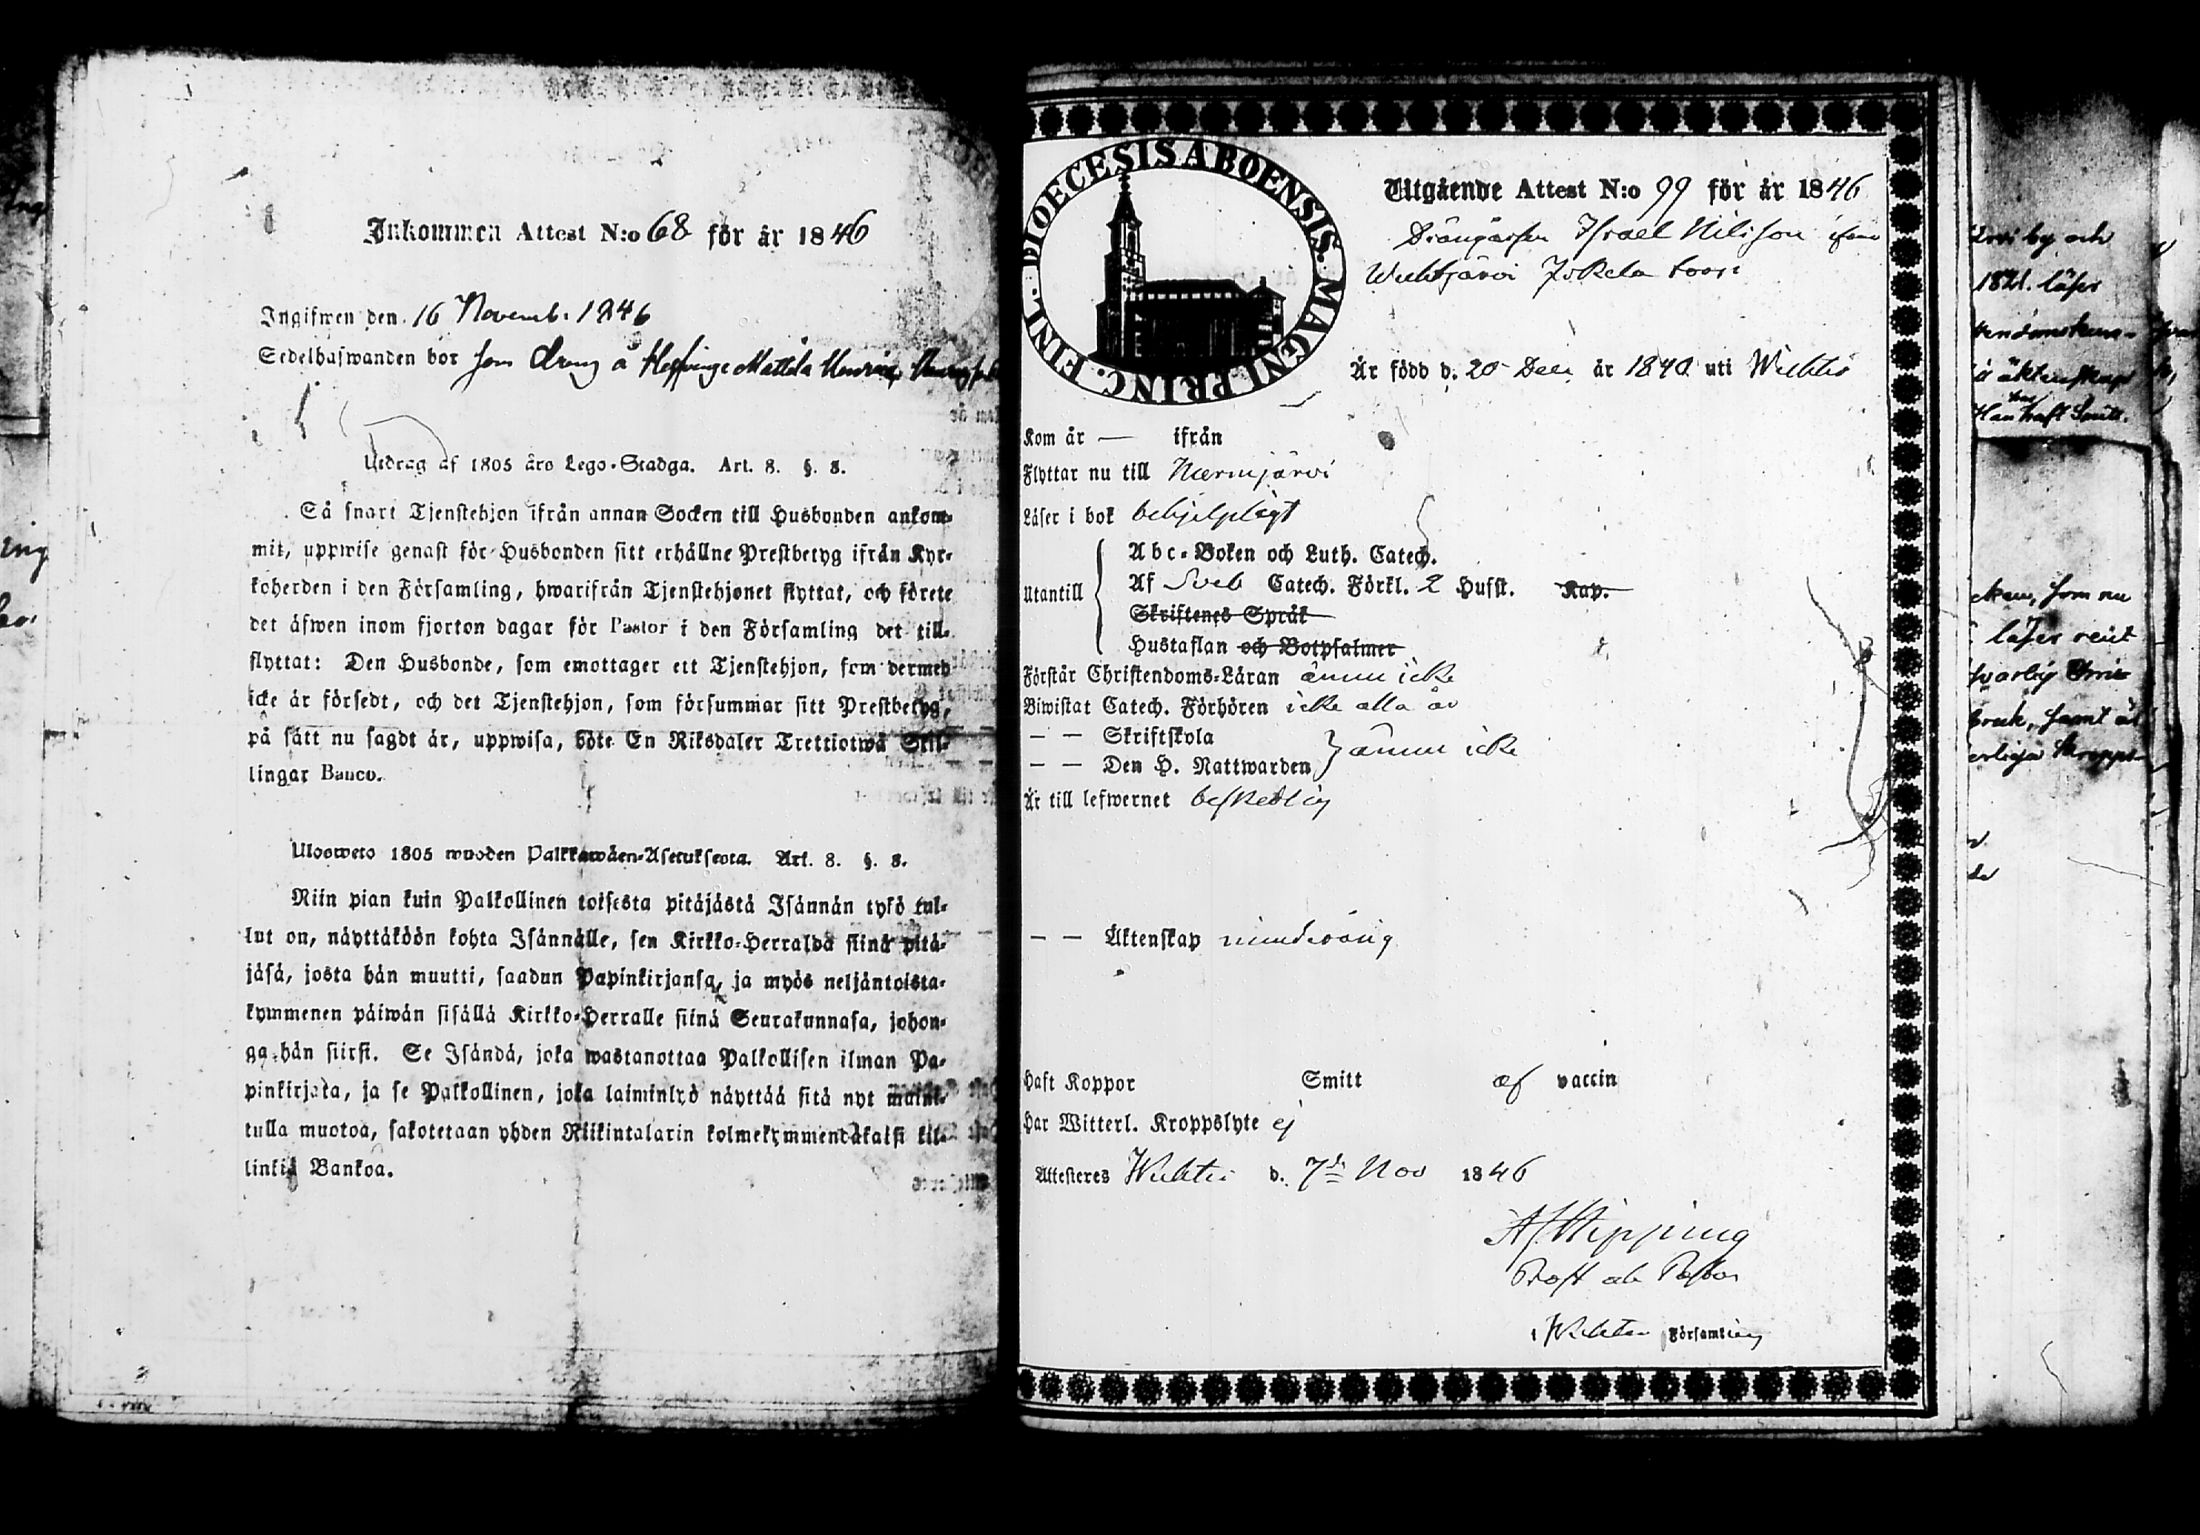 Inkommen Attest N:o 68 för år 1846
Ingifwen den 16 Novemb. 1846
Sedelhafwanden bor som dreng å Mattila
Utdrag af 1805 års Lego-Stadga. Art. 8. §. 8.
Så snart Tjenstehjon ifrån annan Socken till Husbonden ankom-
mit, uppwise genast för Husbonden sitt erhållne Prestbetyg ifrån Kyr-
koherden i den Församling, hwarifrån Tjenstehjonet flyttat, och förete
det äfwen inom fjorton dagar för Pastor i den Församling det till-
flyttat: Den Husbonde, som emottager ett Tjenstehjon, som dermed
icke är försedt, och det Tjenstehjon, som försummar sitt Prestbetyg,
på sätt nu sagdt är, uppwisa, böte En Riksdaler Trettiotwå Skil-
lingar Banco.
Ulosweto 1805 wuoden Palkkawäen-Asetuksesta. Art. 8. §. 8.
Niin pian kuin Palkollinen toisesta pitäjästä Isännän tykö tul-
lut on, näyttäköön kohta Isännälle, sen Kirkko-Herralda siinä pitä-
jäsä, josta hän muutti, saadun Papinkirjansa, ja myös neljäntoista-
kymmenen päiwän sisällä Kirkko-Herralle siinä Seurakunnasa, johon-
ga hän siirsi. Se Isändä, joka wastanottaa Palkollisen ilman Pa-
pinkirjata, ja se Palkollinen, joka laiminlyö näyttää sitä nyt maini-
tulla muotoa, sakotetaan yhden Riikintalarin kolmekymmendäkaksi kil-
linkiä Bankoa.
DIOECESIS ABOENSIS. MAGNI PRINC. FINL.
Utgående Attest N:o 99 för år 1846
Drängåssen Israel Nilsson ifrån
Wichtjärvi Jokela torp
Är född d. 20 Dec. år 1840 uti Wichtis
Kom år — ifrån
Flyttar nu till Nurmijärvi
Läser i bok behjelpligt
Utantill
Abc-Boken och Luth. Catech.
Af Sveb Catech. Förkl. 2 Hufst. Kap.
Skriftenes Språk
Hustaflan och Botpsalmer
Förstår Christendoms-Läran ännu icke
Biwistat Catech. Förhören icke alla år
— — Skriftskola
— — Den H. Nattwarden ännu icke
Är till lefwernet beskedlig
— — Äktenskap minderårig
Haft Koppor Smitt af vaccin
Har Witterl. Kroppslyte ej
Attesteres Wichtis d. 7de Nov 1846
Hipping
Prost och Pastor
i Wichtis Församling